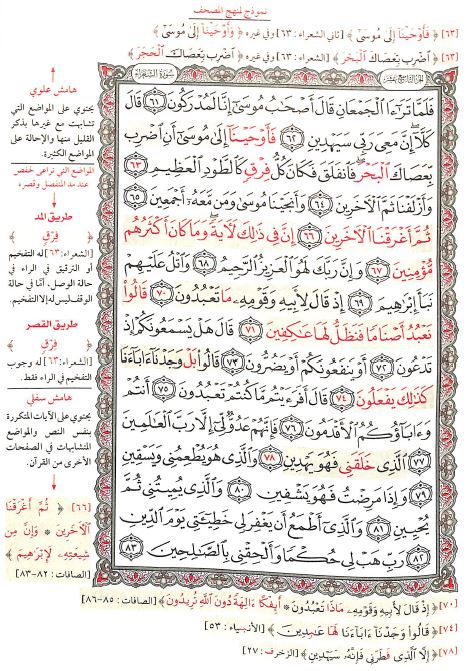 نموذج لمنهج المصحف
[٦٣] ﴿ فَأَوْحَيْنَا إِلَىٰ مُوسَىٰ ﴾ [ثاني الشعراء: ٦٣] وفي غيره ﴿ وَأَوْحَيْنَا إِلَىٰ مُوسَىٰ ﴾
[٦٣] ﴿ اضْرِب بِّعَصَاكَ الْبَحْرَ ﴾ [الشعراء: ٦٣] وفي غيره ﴿ اضْرِب بِّعَصَاكَ الْحَجَرَ ﴾
الجزء التاسع عشر
سورة الشعراء
فَلَمَّا تَرَاءَا الْجَمْعَانِ قَالَ أَصْحَابُ مُوسَىٰ إِنَّا لَمُدْرَكُونَ ٦١ قَالَ
كَلَّا إِنَّ مَعِيَ رَبِّي سَيَهْدِينِ ٦٢ فَأَوْحَيْنَا إِلَىٰ مُوسَىٰ أَنِ اضْرِب
بِّعَصَاكَ الْبَحْرَ فَانفَلَقَ فَكَانَ كُلُّ فِرْقٍ كَالطَّوْدِ الْعَظِيمِ ٦٣
وَأَزْلَفْنَا ثَمَّ الْآخَرِينَ ٦٤ وَأَنجَيْنَا مُوسَىٰ وَمَن مَّعَهُ أَجْمَعِينَ ٦٥
ثُمَّ أَغْرَقْنَا الْآخَرِينَ ٦٦ إِنَّ فِي ذَٰلِكَ لَآيَةً وَمَا كَانَ أَكْثَرُهُم
مُّؤْمِنِينَ ٦٧ وَإِنَّ رَبَّكَ لَهُوَ الْعَزِيزُ الرَّحِيمُ ٦٨ وَاتْلُ عَلَيْهِمْ
نَبَأَ إِبْرَاهِيمَ ٦٩ إِذْ قَالَ لِأَبِيهِ وَقَوْمِهِ مَا تَعْبُدُونَ ٧٠ قَالُوا
نَعْبُدُ أَصْنَامًا فَنَظَلُّ لَهَا عَاكِفِينَ ٧١ قَالَ هَلْ يَسْمَعُونَكُمْ إِذْ
تَدْعُونَ ٧٢ أَوْ يَنفَعُونَكُمْ أَوْ يَضُرُّونَ ٧٣ قَالُوا بَلْ وَجَدْنَا آبَاءَنَا
كَذَٰلِكَ يَفْعَلُونَ ٧٤ قَالَ أَفَرَأَيْتُم مَّا كُنتُمْ تَعْبُدُونَ ٧٥ أَنتُمْ
وَآبَاؤُكُمُ الْأَقْدَمُونَ ٧٦ فَإِنَّهُمْ عَدُوٌّ لِّي إِلَّا رَبَّ الْعَالَمِينَ
٧٧ الَّذِي خَلَقَنِي فَهُوَ يَهْدِينِ ٧٨ وَالَّذِي هُوَ يُطْعِمُنِي وَيَسْقِينِ
٧٩ وَإِذَا مَرِضْتُ فَهُوَ يَشْفِينِ ٨٠ وَالَّذِي يُمِيتُنِي ثُمَّ
يُحْيِينِ ٨١ وَالَّذِي أَطْمَعُ أَن يَغْفِرَ لِي خَطِيئَتِي يَوْمَ الدِّينِ
٨٢ رَبِّ هَبْ لِي حُكْمًا وَأَلْحِقْنِي بِالصَّالِحِينَ ٨٣
هامش علوي
يحتوي على المواضع التي
تشابهت مع غيرها بذكر
القليل منها والإحالة على
المواضع الكثيرة.
المواضع التي تراعى لحفص
عند مد المنفصل وقصره
طريق المد
﴿ فِرْقٍ ﴾
[الشعراء: ٦٣] له التفخيم
أو الترقيق في الراء في
حالة الوصل، أمّا في حالة
الوقف ليس له إلا التفخيم.
طريق القصر
﴿ فِرْقٍ ﴾
[الشعراء: ٦٣] له وجوب
التفخيم في الراء فقط.
هامش سفلي
يحتوي على الآيات المتكررة
بنفس النص والمواضع
المتشابهات في الصفحات
الأخرى من القرآن.
[٦٦] ﴿ ثُمَّ أَغْرَقْنَا
الْآخَرِينَ * وَإِنَّ مِن
شِيعَتِهِ لَإِبْرَاهِيمَ ﴾
[الصافات: ٨٢-٨٣]
[٧٠] ﴿ إِذْ قَالَ لِأَبِيهِ وَقَوْمِهِ مَاذَا تَعْبُدُونَ * أَئِفْكًا آلِهَةً دُونَ اللَّهِ تُرِيدُونَ ﴾ [الصافات: ٨٥-٨٦]
[٧٤] ﴿ قَالُوا وَجَدْنَا آبَاءَنَا لَهَا عَابِدِينَ ﴾ [الأنبياء: ٥٣]
[٧٨] ﴿ إِلَّا الَّذِي فَطَرَنِي فَإِنَّهُ سَيَهْدِينِ ﴾ [الزخرف: ٢٧]